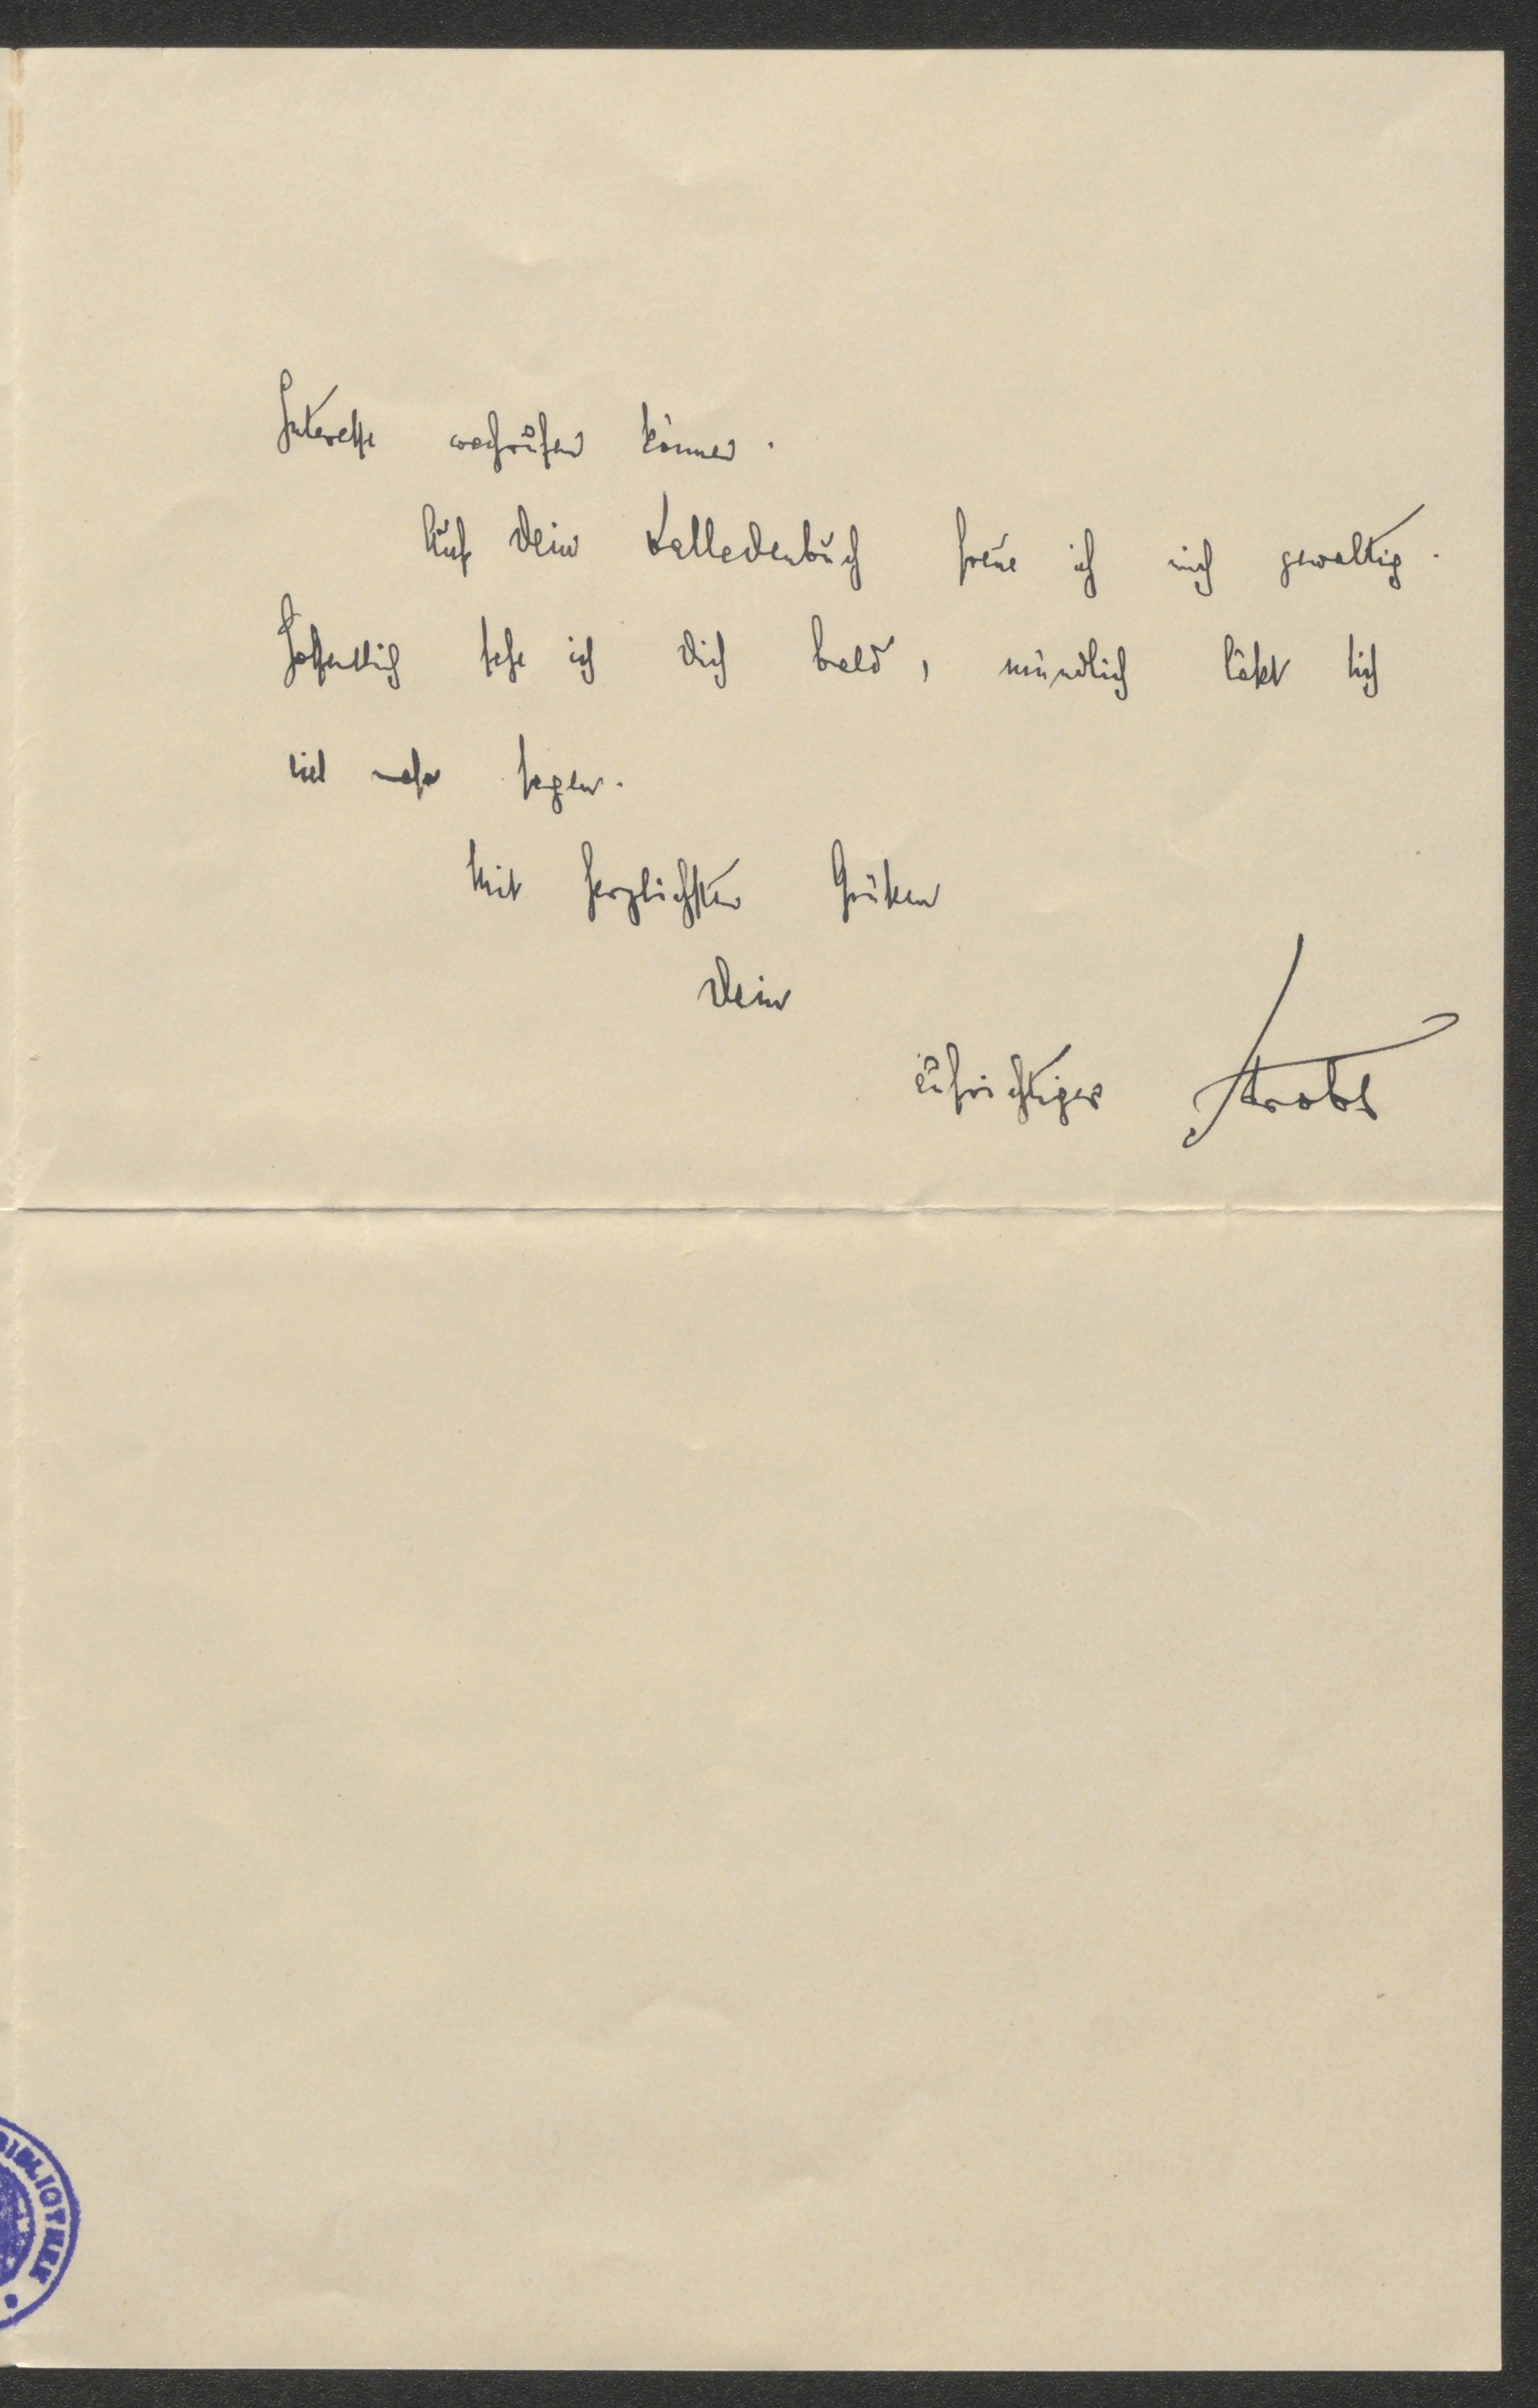 Interesse wachrufen können.
Auf Dein Balladenbuch freue ich mich gewaltig.
Hoffentlich sehe ich Dich bald, mündlich läßt sich
viel mehr sagen.
Mit herzlichsten Grüßen
Dein
aufrichtiger Strobl
BIBLIOTHEK